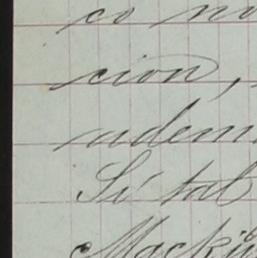 co no
cion,
adem
Si tal
Mackin